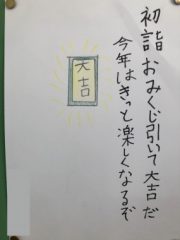 初詣 おみくじ引いて大吉だ
今年はきっと楽しくなるぞ
大吉